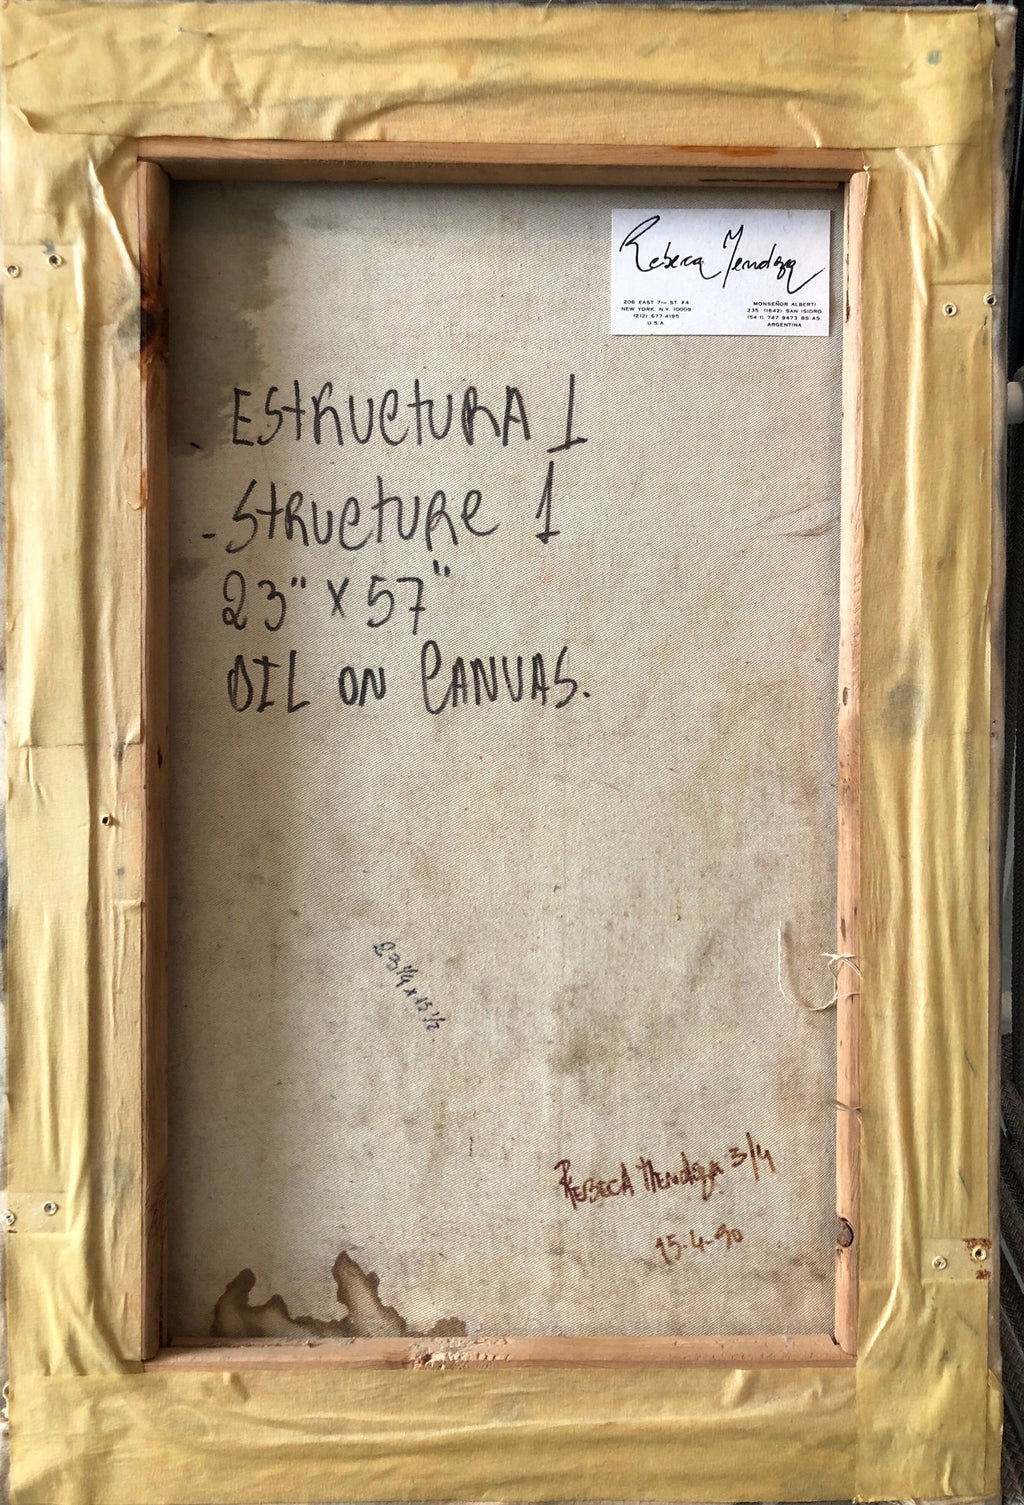 Rebeca Mendoza
206 EAST 7TH ST #4
NEW YORK N.Y. 10009
(212) 677-4195
U.S.A
MONSEÑOR ALBERTI
235 (1642) SAN ISIDRO
(54-1) 747 9473 BS AS
ARGENTINA
. ESTRUCTURA 1
- STRUCTURE 1
23" X 57"
OIL ON CANVAS.
23 1/4 x 15 1/2
REBECA MENDOZA 3/4
15-4-90